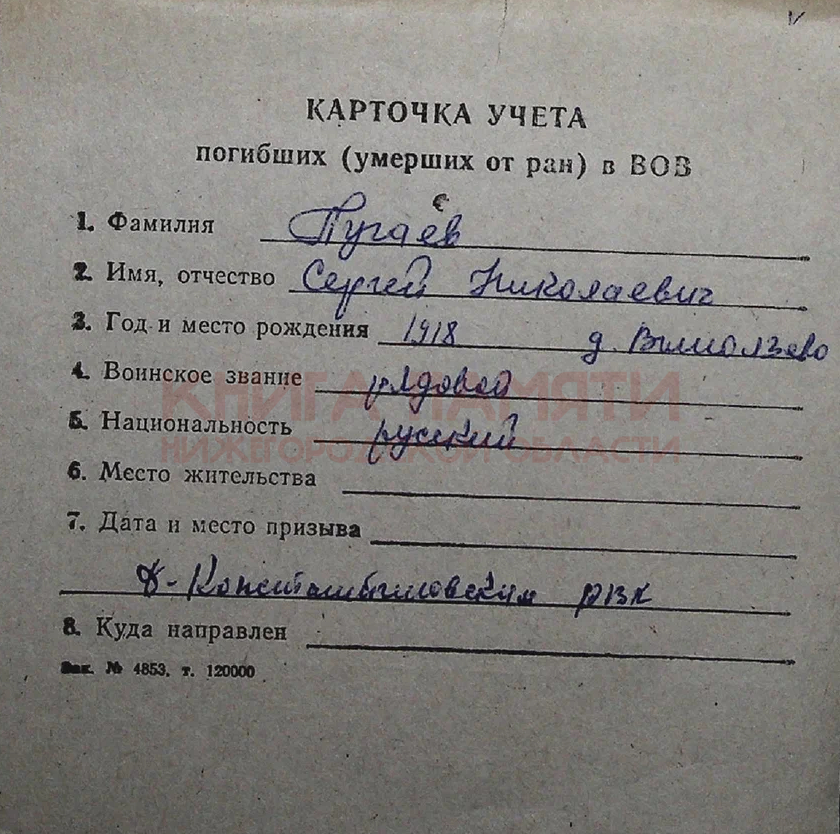 КАРТОЧКА УЧЕТА
погибших (умерших от ран) в ВОВ
1. Фамилия Пугаев
2. Имя, отчество Сергей Николаевич
3. Год и место рождения 1918 д. Вымолзево
4. Воинское звание рядовой
5. Национальность русский
КНИГА ПАМЯТИ
НИЖЕГОРОДСКОЙ ОБЛАСТИ
6. Место жительства
7. Дата и место призыва
Д-Константиновским РВК
8. Куда направлен
Зак. № 4853. т. 120000